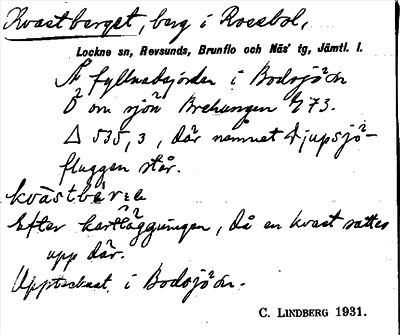 Kvastberget, berg i Rossbol,
Lockne sn, Revsunds, Brunflo och Näs' tg, Jämtl. l.
fyllnadsjorden i Bodsjön
Ö om sjön E 73.
Δ 535,3, där namnet Djupsjö-
fluggen står.
Efter kartläggningen, då en kvast sattes
upp där.
Upptecknat i Bodsjön.
C. LINDBERG 1931.